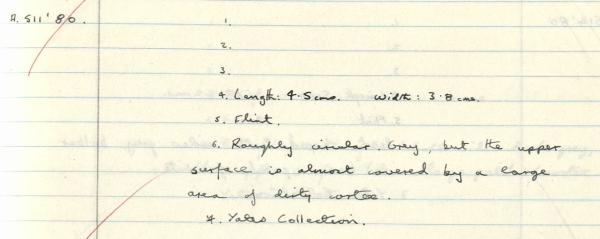 A. 511 '80. 1.
2.
3.
4. Length: 4.5 cms. Width: 3.8 cms.
5. Flint.
6. Roughly circular. Grey, but the upper
surface is almost covered by a large
area of dirty cortex.
7. Yates Collection.